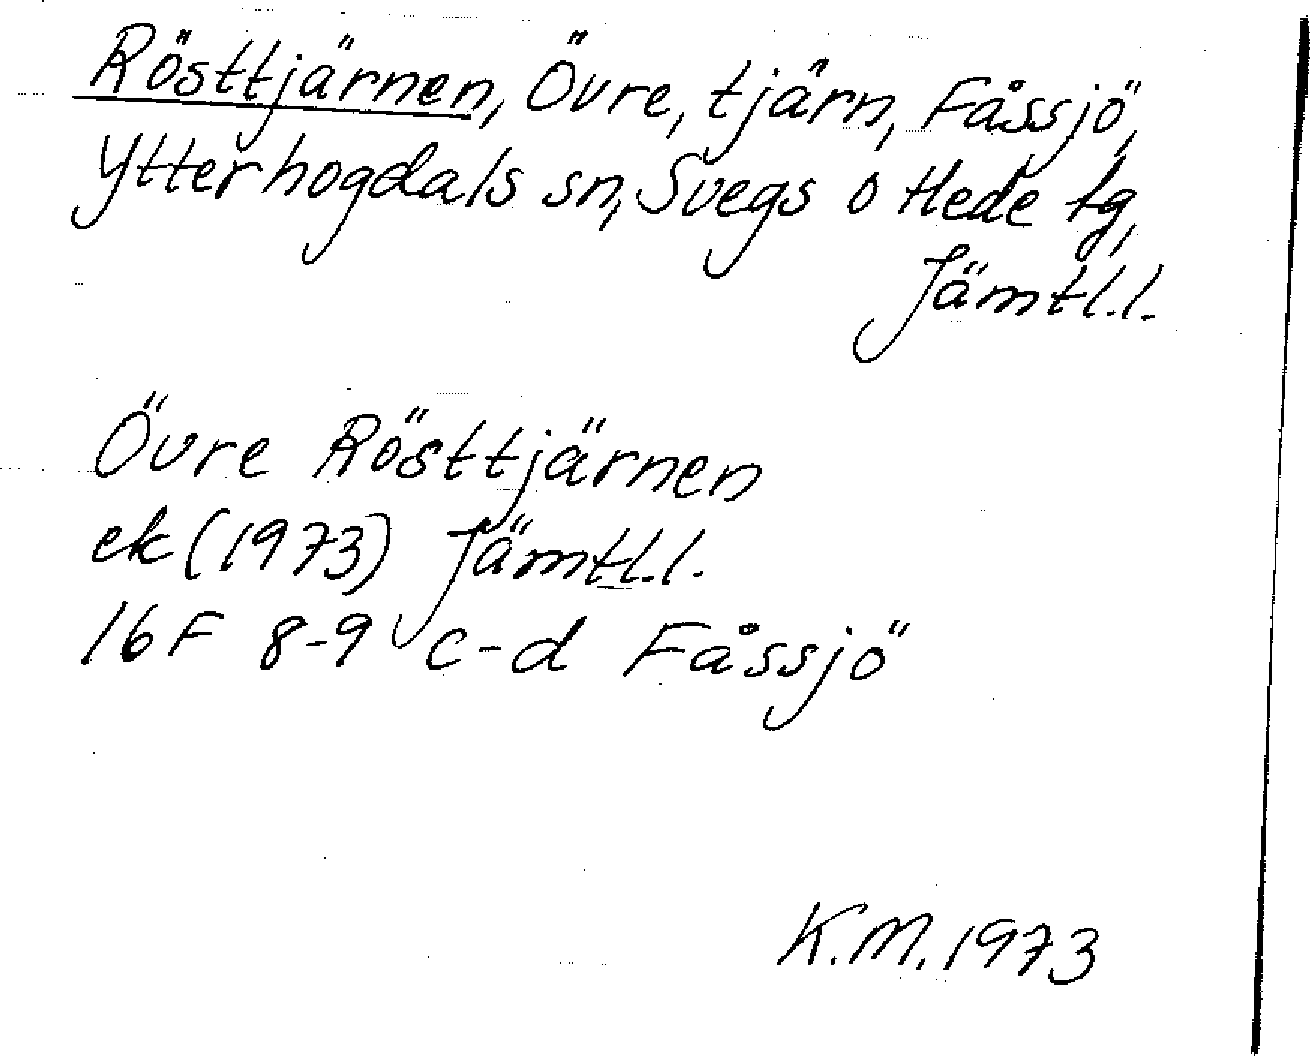 Rösttjärnen, Övre, tjärn, Fåssjö,
Ytterhogdals sn, Svegs o Hede tg,
Jämtl.l.
Övre Rösttjärnen
ek (1973) Jämtl.l.
16F 8-9 c-d Fåssjö
K.M. 1973